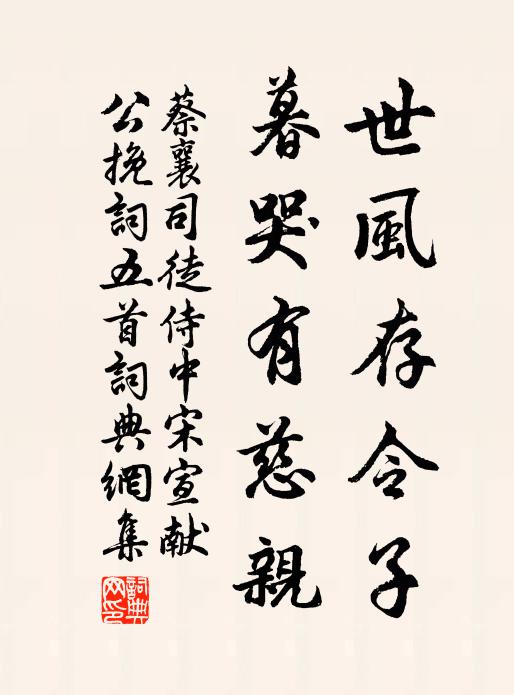 世風存令子
暮哭有慈親
蔡襄司徒侍中宋宣献
公挽詞五首詞典網集
詞典
网印